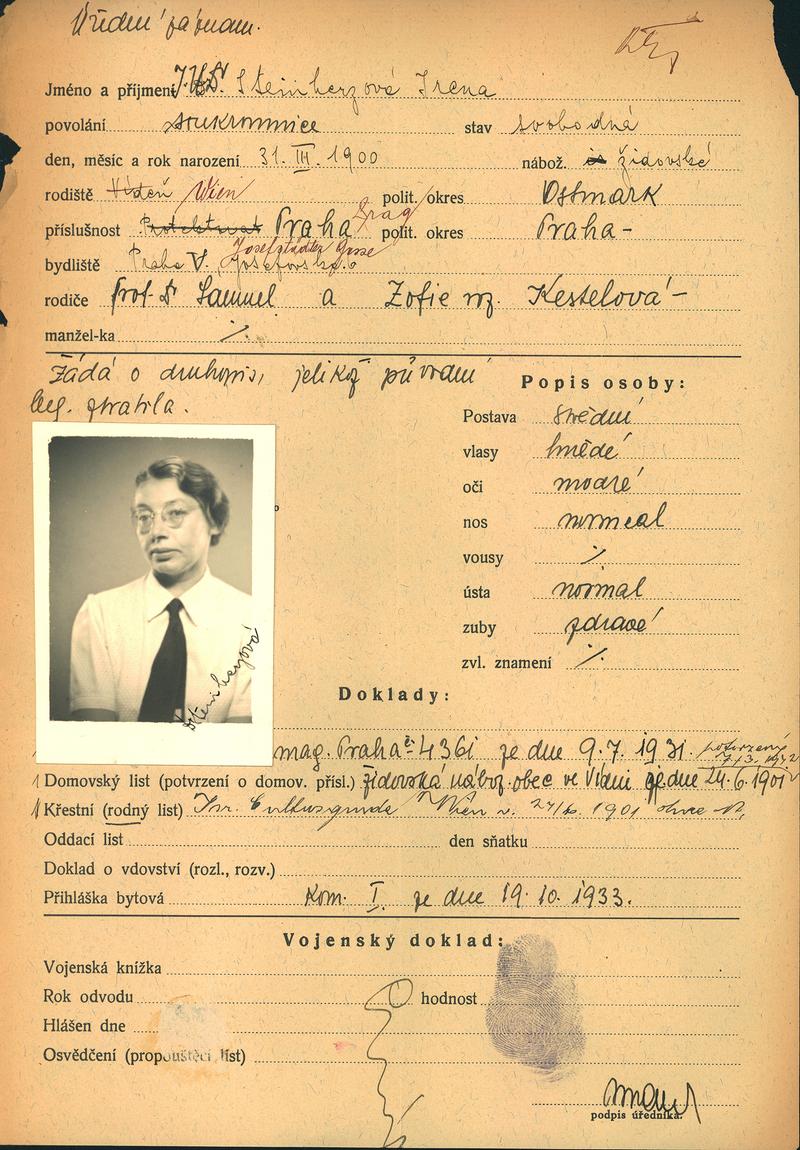 Úřední záznam.
Jméno a příjmení J.U.Dr. Steinherzová Irena
povolání soukromnice stav svobodná
den, měsíc a rok narození 31. III. 1900 nábož. židovské
rodiště Vídeň Wien polit. okres Ostmark
příslušnost Protektorat Praha Prag polit. okres Praha-
bydliště Praha V., Josefovská 6 Josefstädter Gasse
rodiče Prof. Dr Samuel a Zofie roz. Kestelová-
manžel-ka ·/.
Žádá o druhopis, jelikož původní
leg. ztratila.
Popis osoby:
Postava střední
vlasy hnědé
oči modré
nos normal
vousy ·/.
ústa normal
zuby zdravé
zvl. znamení ·/.
Steinherzová
Doklady:
mag. Praha č. 4361 ze dne 9.7.1931. potvrzený
Domovský list (potvrzení o domov. přísl.) židovská nábož. obec ve Vídni ze dne 24.6.1901
Křestní (rodný list) Isr. Cultusgemeinde Wien v. 24/6. 1901
Oddací list den sňatku
Doklad o vdovství (rozl., rozv.)
Přihláška bytová Kom. I. ze dne 19.10.1933.
Vojenský doklad:
Vojenská knížka
Rok odvodu hodnost
Hlášen dne
Osvědčení (propouštěcí list)
podpis úředníka.